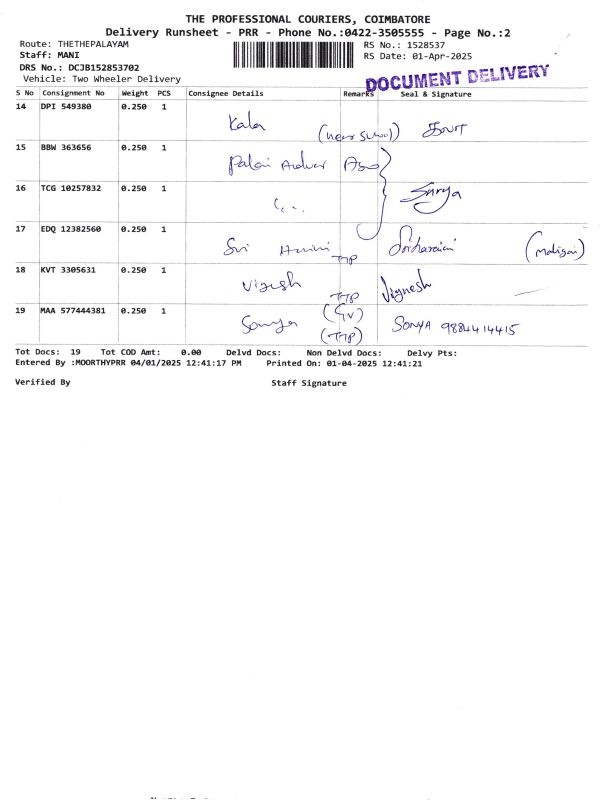 THE PROFESSIONAL COURIERS, COIMBATORE
Delivery Runsheet - PRR - Phone No.:0422-3505555 - Page No.:2
Route: THETHEPALAYAM
RS No.: 1528537
Staff: MANI
RS Date: 01-Apr-2025
DRS No.: DCJB152853702
Vehicle: Two Wheeler Delivery
DOCUMENT DELIVERY
S No Consignment No Weight PCS Consignee Details Remarks Seal & Signature
14 DPI 549380 0.250 1
Kala
15 BBW 363656 0.250 1
16 TCG 10257832 0.250 1
Surya
17 EDQ 12382560 0.250 1
Sri Harini TTP
18 KVT 3305631 0.250 1
Vignesh TTP Vignesh
19 MAA 577444381 0.250 1
Sonya (TTP) SONYA 9884414415
Tot Docs: 19 Tot COD Amt: 0.00 Delvd Docs: Non Delvd Docs: Delvy Pts:
Entered By :MOORTHYPRR 04/01/2025 12:41:17 PM Printed On: 01-04-2025 12:41:21
Verified By Staff Signature